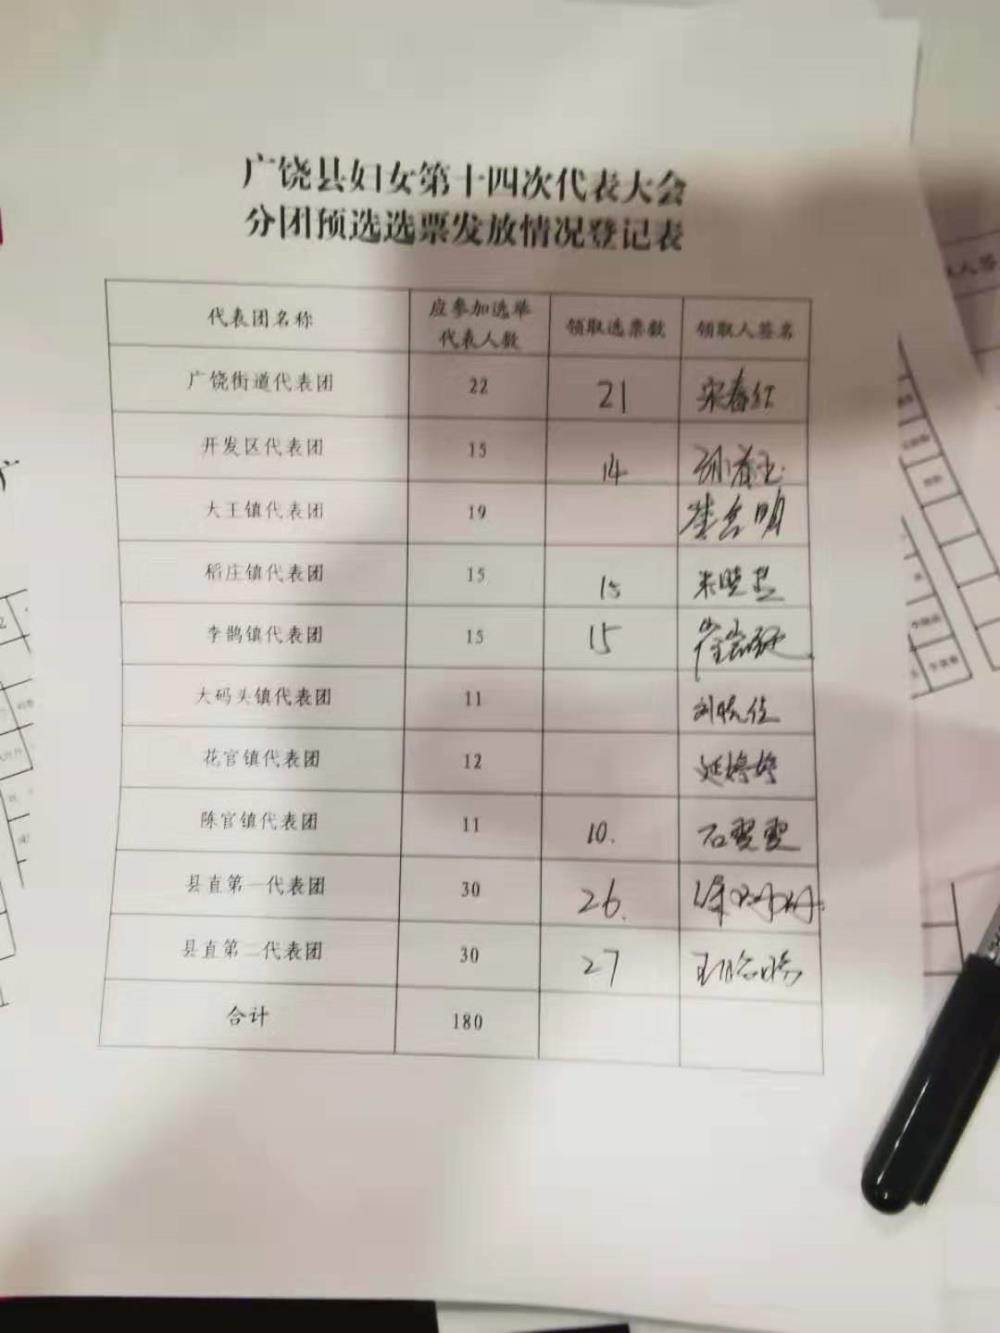 广饶县妇女第十四次代表大会
分团预选选票发放情况登记表
代表团名称 应参加选举代表人数 领取选票数 领取人签名
广饶街道代表团 22 21 宋春红
开发区代表团 15 14
大王镇代表团 19
稻庄镇代表团 15 15
李鹊镇代表团 15 15
大码头镇代表团 11
花官镇代表团 12 延婷婷
陈官镇代表团 11 10. 石雯雯
县直第一代表团 30 26.
县直第二代表团 30 27
合计 180